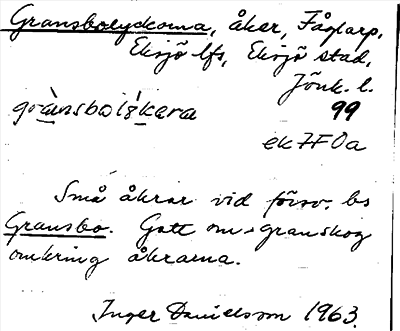 Gransbolyckorna, åker, Fåglarp,
Eksjö lfs, Eksjö stad,
Jönk. l.
99
ek7F0a
Små åkrar vid försv. bs
Gransbo. Gott om granskog
omkring åkrarna.
Inger Danielsson 1963.